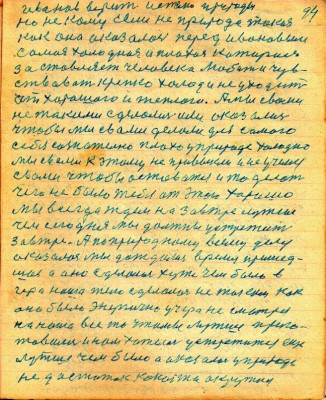 94
Иванов верит
но не кому семи не природа такая
как она оказалась перед Ивановым
самая холодная и плохая которая
заставляет человека любить и чув-
ствовать крепко холод и не уходить
от хорошего и теплого. А мы своими
не такими сделались или оказались
чтобы мы своими делами для самого
себя плохо у природе холодно
мы своим к этому не привыкли и не учимся
своим чтобы оставаться и то делать
чего не было тебе от этого хорошо
мы всегда ждем на завтра лучше
чем сегодня мы должны встретить
завтра. А по природному всему делу
оказалось мы дождались время пришед-
шая а оно сделалось хуже чем было в
чера наша тело сделалось не таким как
оно было энергично учера не смотря
на наше все то что мы лучше приго-
товили и нам хотелось устретить еще
лучше чем было а оказалось у природе
не достаток какой то